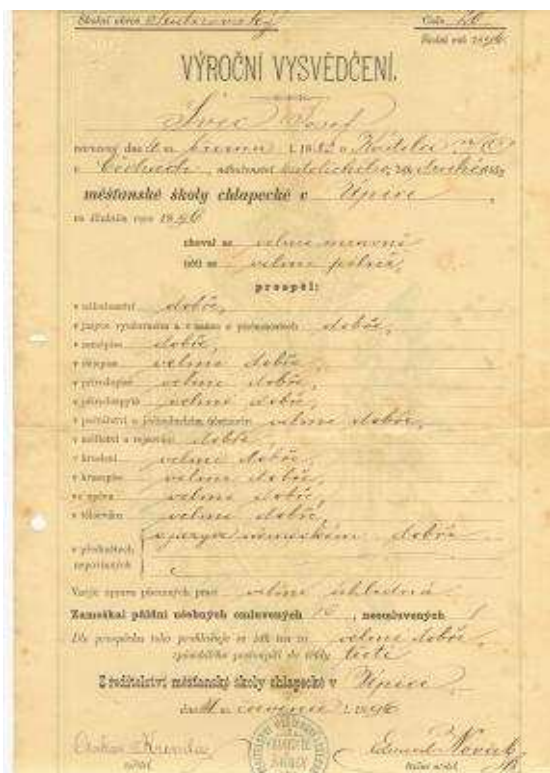 Školní okres
Číslo 20
Školní rok 1896
VÝROČNÍ VYSVĚDČENÍ.
Švec Josef
narozený dne m. března l. 1882 v
v Čechách, náboženství katolického, žák druhé třídy
měšťanské školy chlapecké v Úpici,
ve školním roce 1896
choval se velmi mravně
učil se velmi pilně,
prospěl:
v náboženství dobře,
v jazyce vyučovacím a v nauce o písemnostech dobře,
v zeměpise dobře,
v dějepise velmi dobře,
v přírodopise velmi dobře,
v přírodozpytě velmi dobře,
v počtářství a jednoduchém účetnictví velmi dobře,
v měřictví a rýsování dobře
v kreslení velmi dobře,
v krasopise velmi dobře,
ve zpěvu velmi dobře,
v tělocviku velmi dobře,
v předmětech nepovinných
v jazyce německém dobře
Vnější úprava písemných prací velmi úhledná.
Zameškal půldní učebných omluvených 16, neomluvených
Dle prospěchu toho prohlašuje se žák ten za velmi dobře,
způsobilého postoupiti do třídy třetí
Z ředitelství měšťanské školy chlapecké v Úpici
dne m. července l. 1896
Eduard Novák
ředitel
třídní učitel